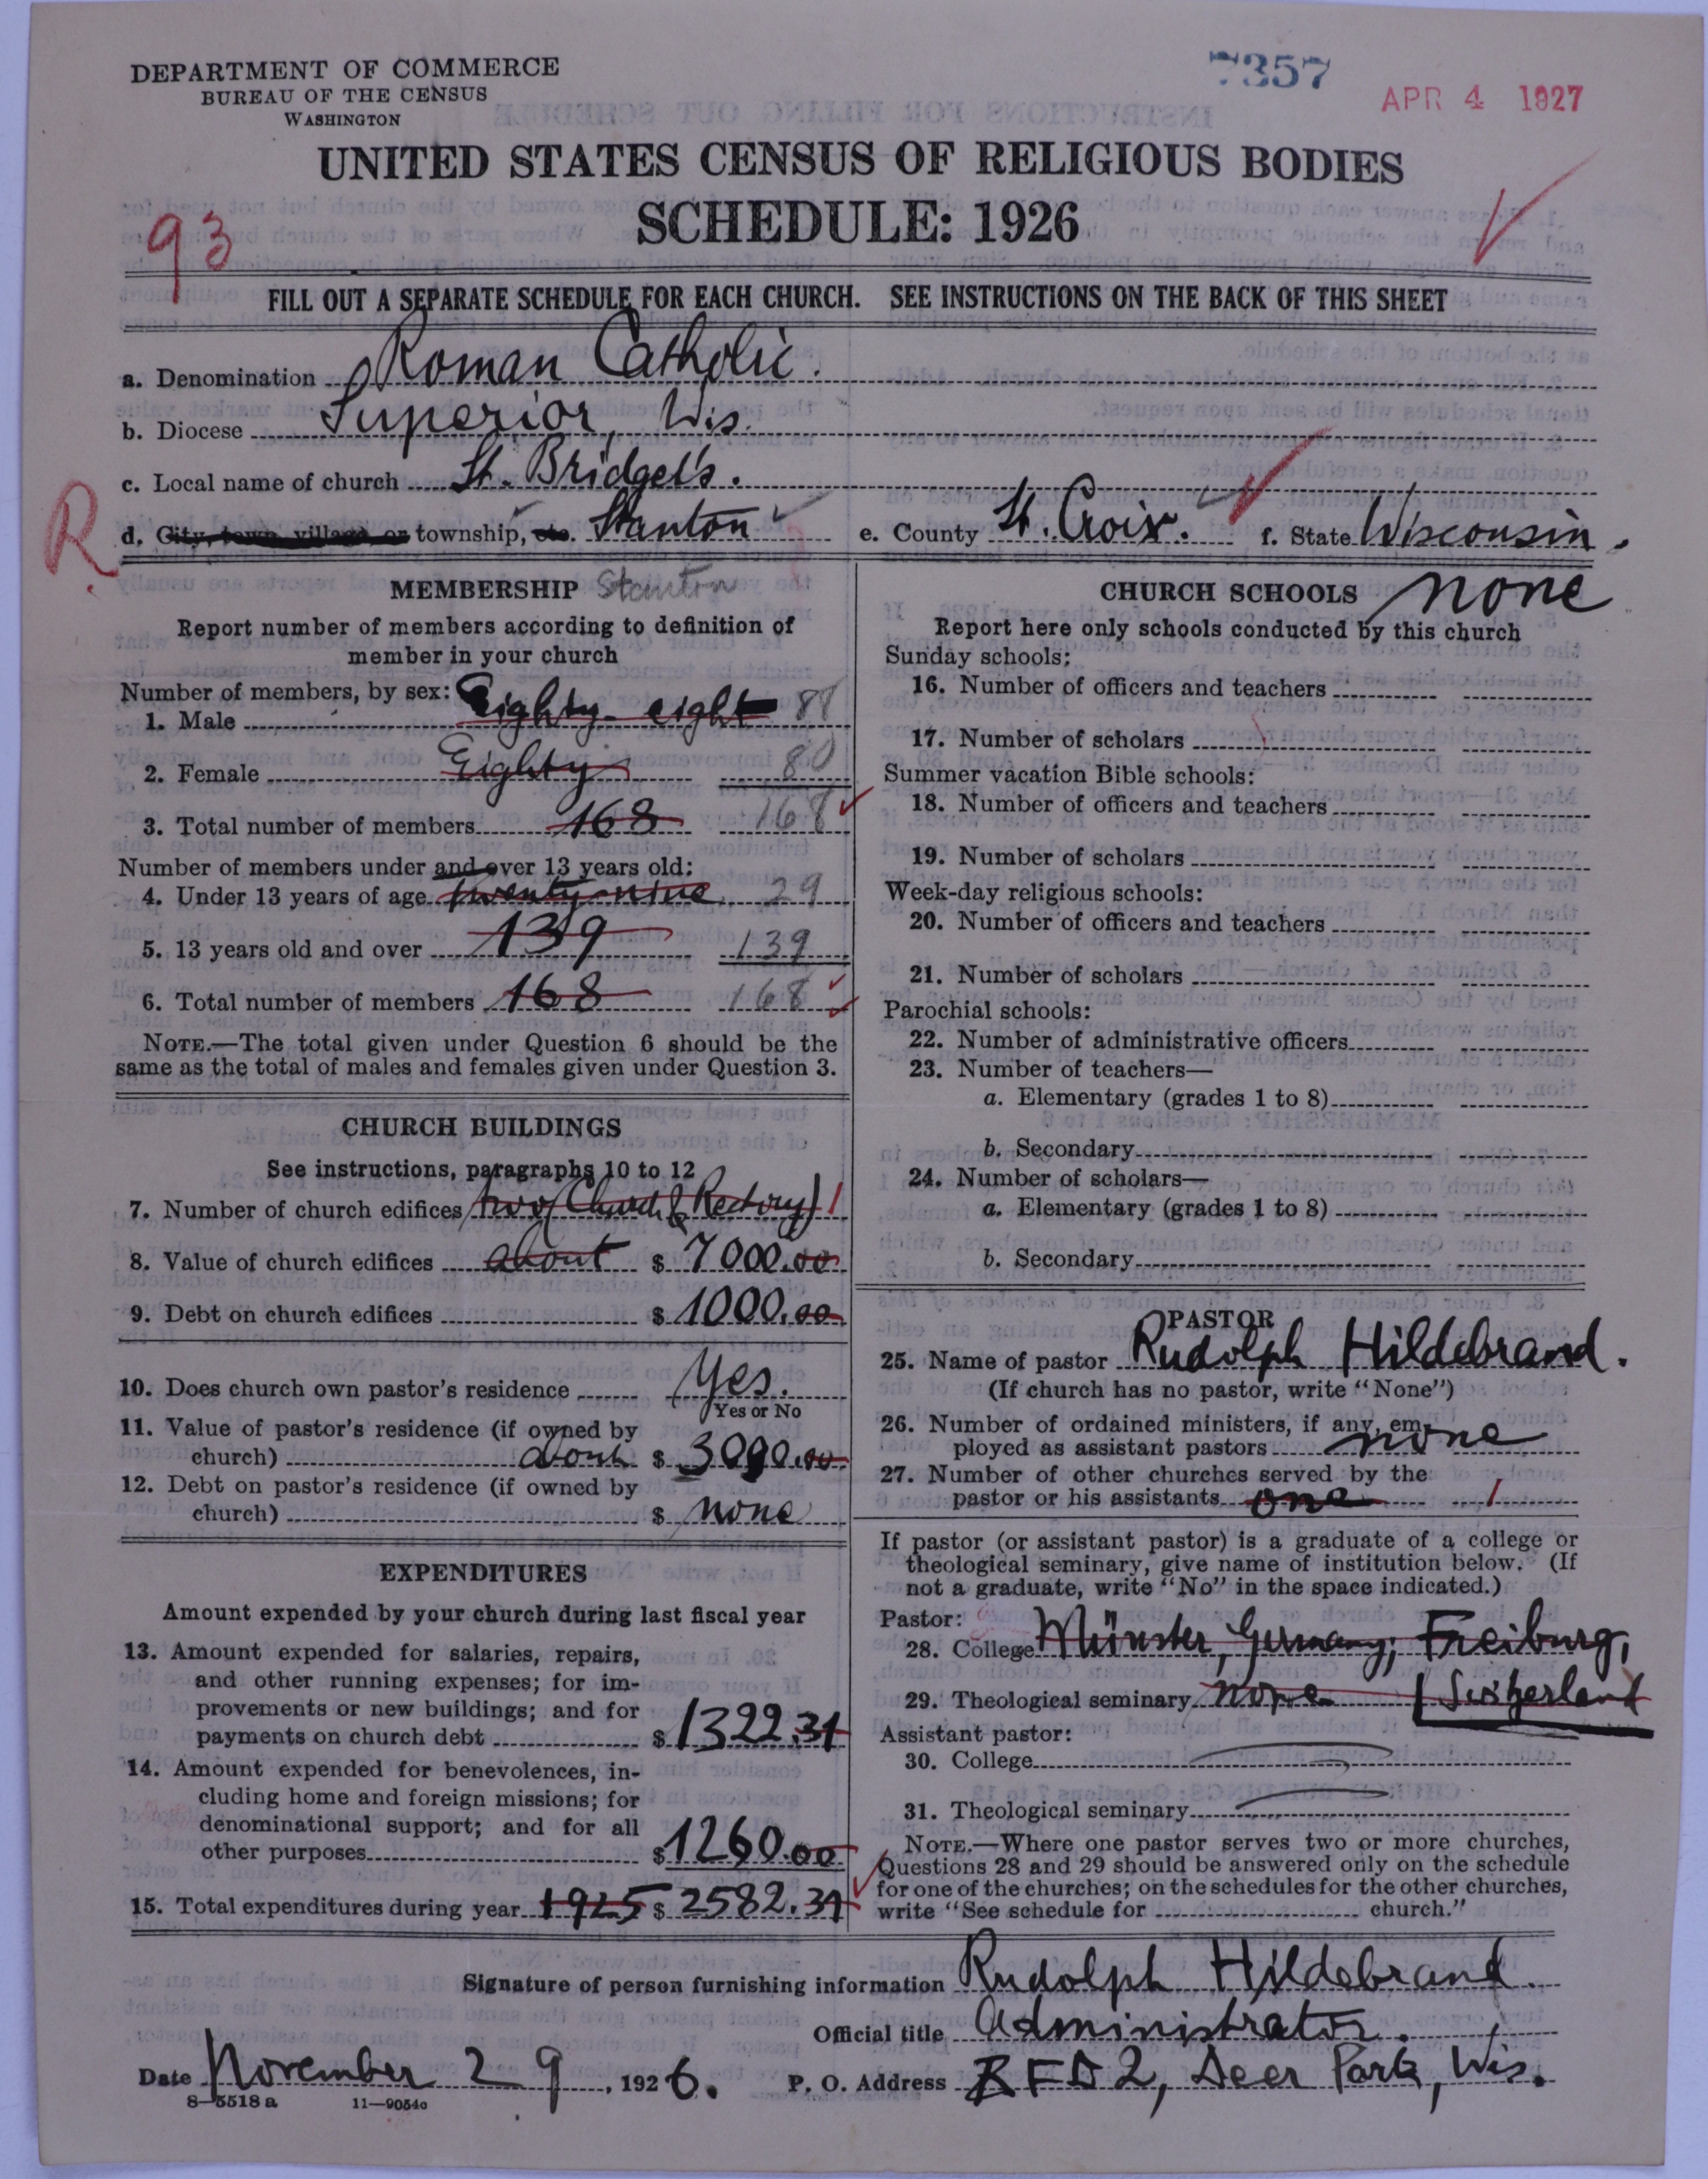 DEPARTMENT OF COMMERCE
BUREAU OF THE CENSUS
WASHINGTON
7357
APR 4 1927
UNITED STATES CENSUS OF RELIGIOUS BODIES
SCHEDULE: 1926
93
FILL OUT A SEPARATE SCHEDULE FOR EACH CHURCH. SEE INSTRUCTIONS ON THE BACK OF THIS SHEET
a. Denomination Roman Catholic.
b. Diocese Superior, Wis.
c. Local name of church St. Bridget's.
R
d. City, town, village, or township, etc. Stanton
e. County St. Croix. f. State Wisconsin.
MEMBERSHIP Stanton
Report number of members according to definition of
member in your church
Number of members, by sex:
1. Male Eighty-eight 88
2. Female Eighty 80
3. Total number of members 168 168
Number of members under and over 13 years old:
4. Under 13 years of age twenty-nine 29
5. 13 years old and over 139 139
6. Total number of members 168 168
NOTE.—The total given under Question 6 should be the
same as the total of males and females given under Question 3.
CHURCH BUILDINGS
See instructions, paragraphs 10 to 12
7. Number of church edifices two (Church & Rectory) 1
8. Value of church edifices about $ 7000.00
9. Debt on church edifices $ 1000.00
10. Does church own pastor's residence Yes.
Yes or No
11. Value of pastor's residence (if owned by
church) about $ 3000.00
12. Debt on pastor's residence (if owned by
church) $ none
EXPENDITURES
Amount expended by your church during last fiscal year
13. Amount expended for salaries, repairs,
and other running expenses; for im-
provements or new buildings; and for
payments on church debt $ 1322.31
14. Amount expended for benevolences, in-
cluding home and foreign missions; for
denominational support; and for all
other purposes $ 1260.00
15. Total expenditures during year 1925 $ 2582.31
CHURCH SCHOOLS none
Report here only schools conducted by this church
Sunday schools:
16. Number of officers and teachers
17. Number of scholars
Summer vacation Bible schools:
18. Number of officers and teachers
19. Number of scholars
Week-day religious schools:
20. Number of officers and teachers
21. Number of scholars
Parochial schools:
22. Number of administrative officers
23. Number of teachers—
a. Elementary (grades 1 to 8)
b. Secondary
24. Number of scholars—
a. Elementary (grades 1 to 8)
b. Secondary
PASTOR
25. Name of pastor Rudolph Hildebrand.
(If church has no pastor, write "None")
26. Number of ordained ministers, if any, em-
ployed as assistant pastors none
27. Number of other churches served by the
pastor or his assistants one 1
If pastor (or assistant pastor) is a graduate of a college or
theological seminary, give name of institution below. (If
not a graduate, write "No" in the space indicated.)
Pastor:
28. College Münster, Germany; Freiburg,
29. Theological seminary none Switzerland
Assistant pastor:
30. College
31. Theological seminary
NOTE.—Where one pastor serves two or more churches,
Questions 28 and 29 should be answered only on the schedule
for one of the churches; on the schedules for the other churches,
write "See schedule for church."
Signature of person furnishing information Rudolph Hildebrand.
Official title Administrator.
Date November 29, 1926. P. O. Address RFD 2, Deer Park, Wis.
8—5518 a 11—9054c